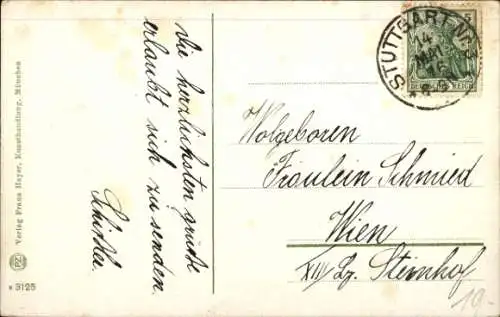 Die herzlichsten grüße
erlaubt sich zu senden.
Wolgeboren
Fräulein Schmied
Wien
XIII/ Steinhof
STUTTGART Nr.
14
MAI
16
5
DEUTSCHES REICH
Verlag Franz Hayer, Kunsthandlung, München
3125
10.-